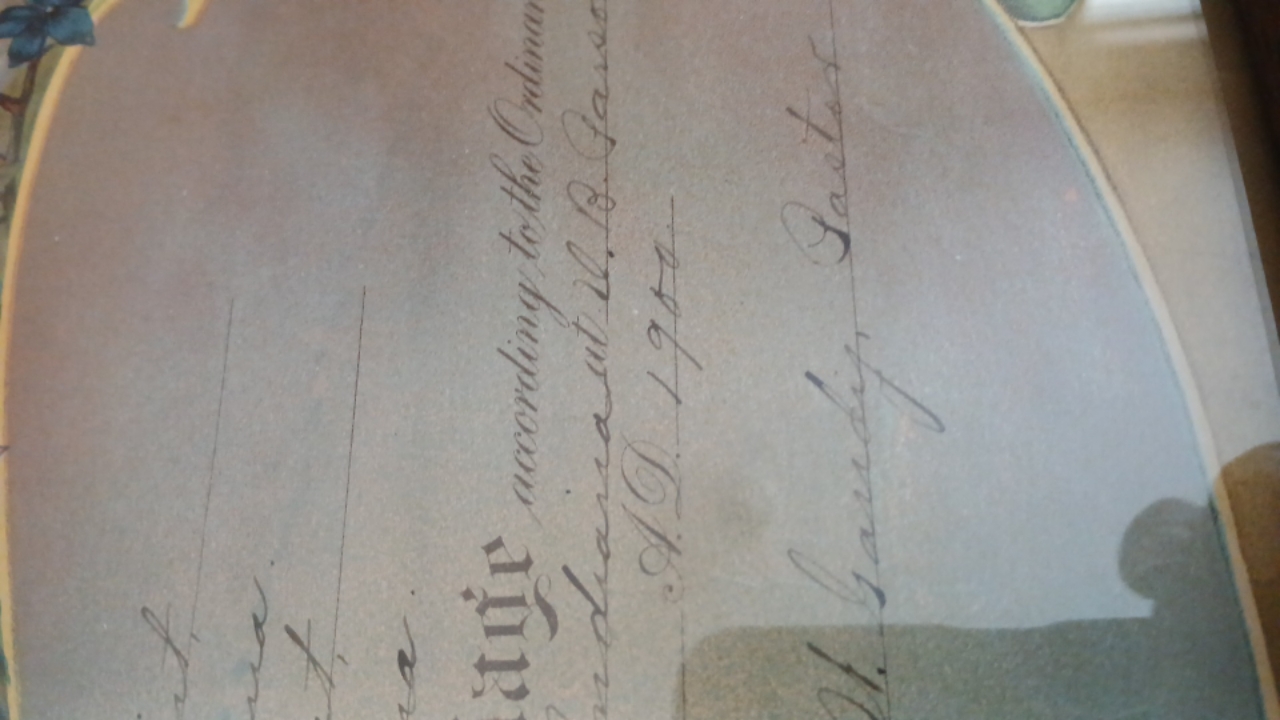 t,
na.
t,
na.
age according to the Ordinan
Indiana at U. B. Parso
A.D. 1900.
H. Gaudy, Pastor